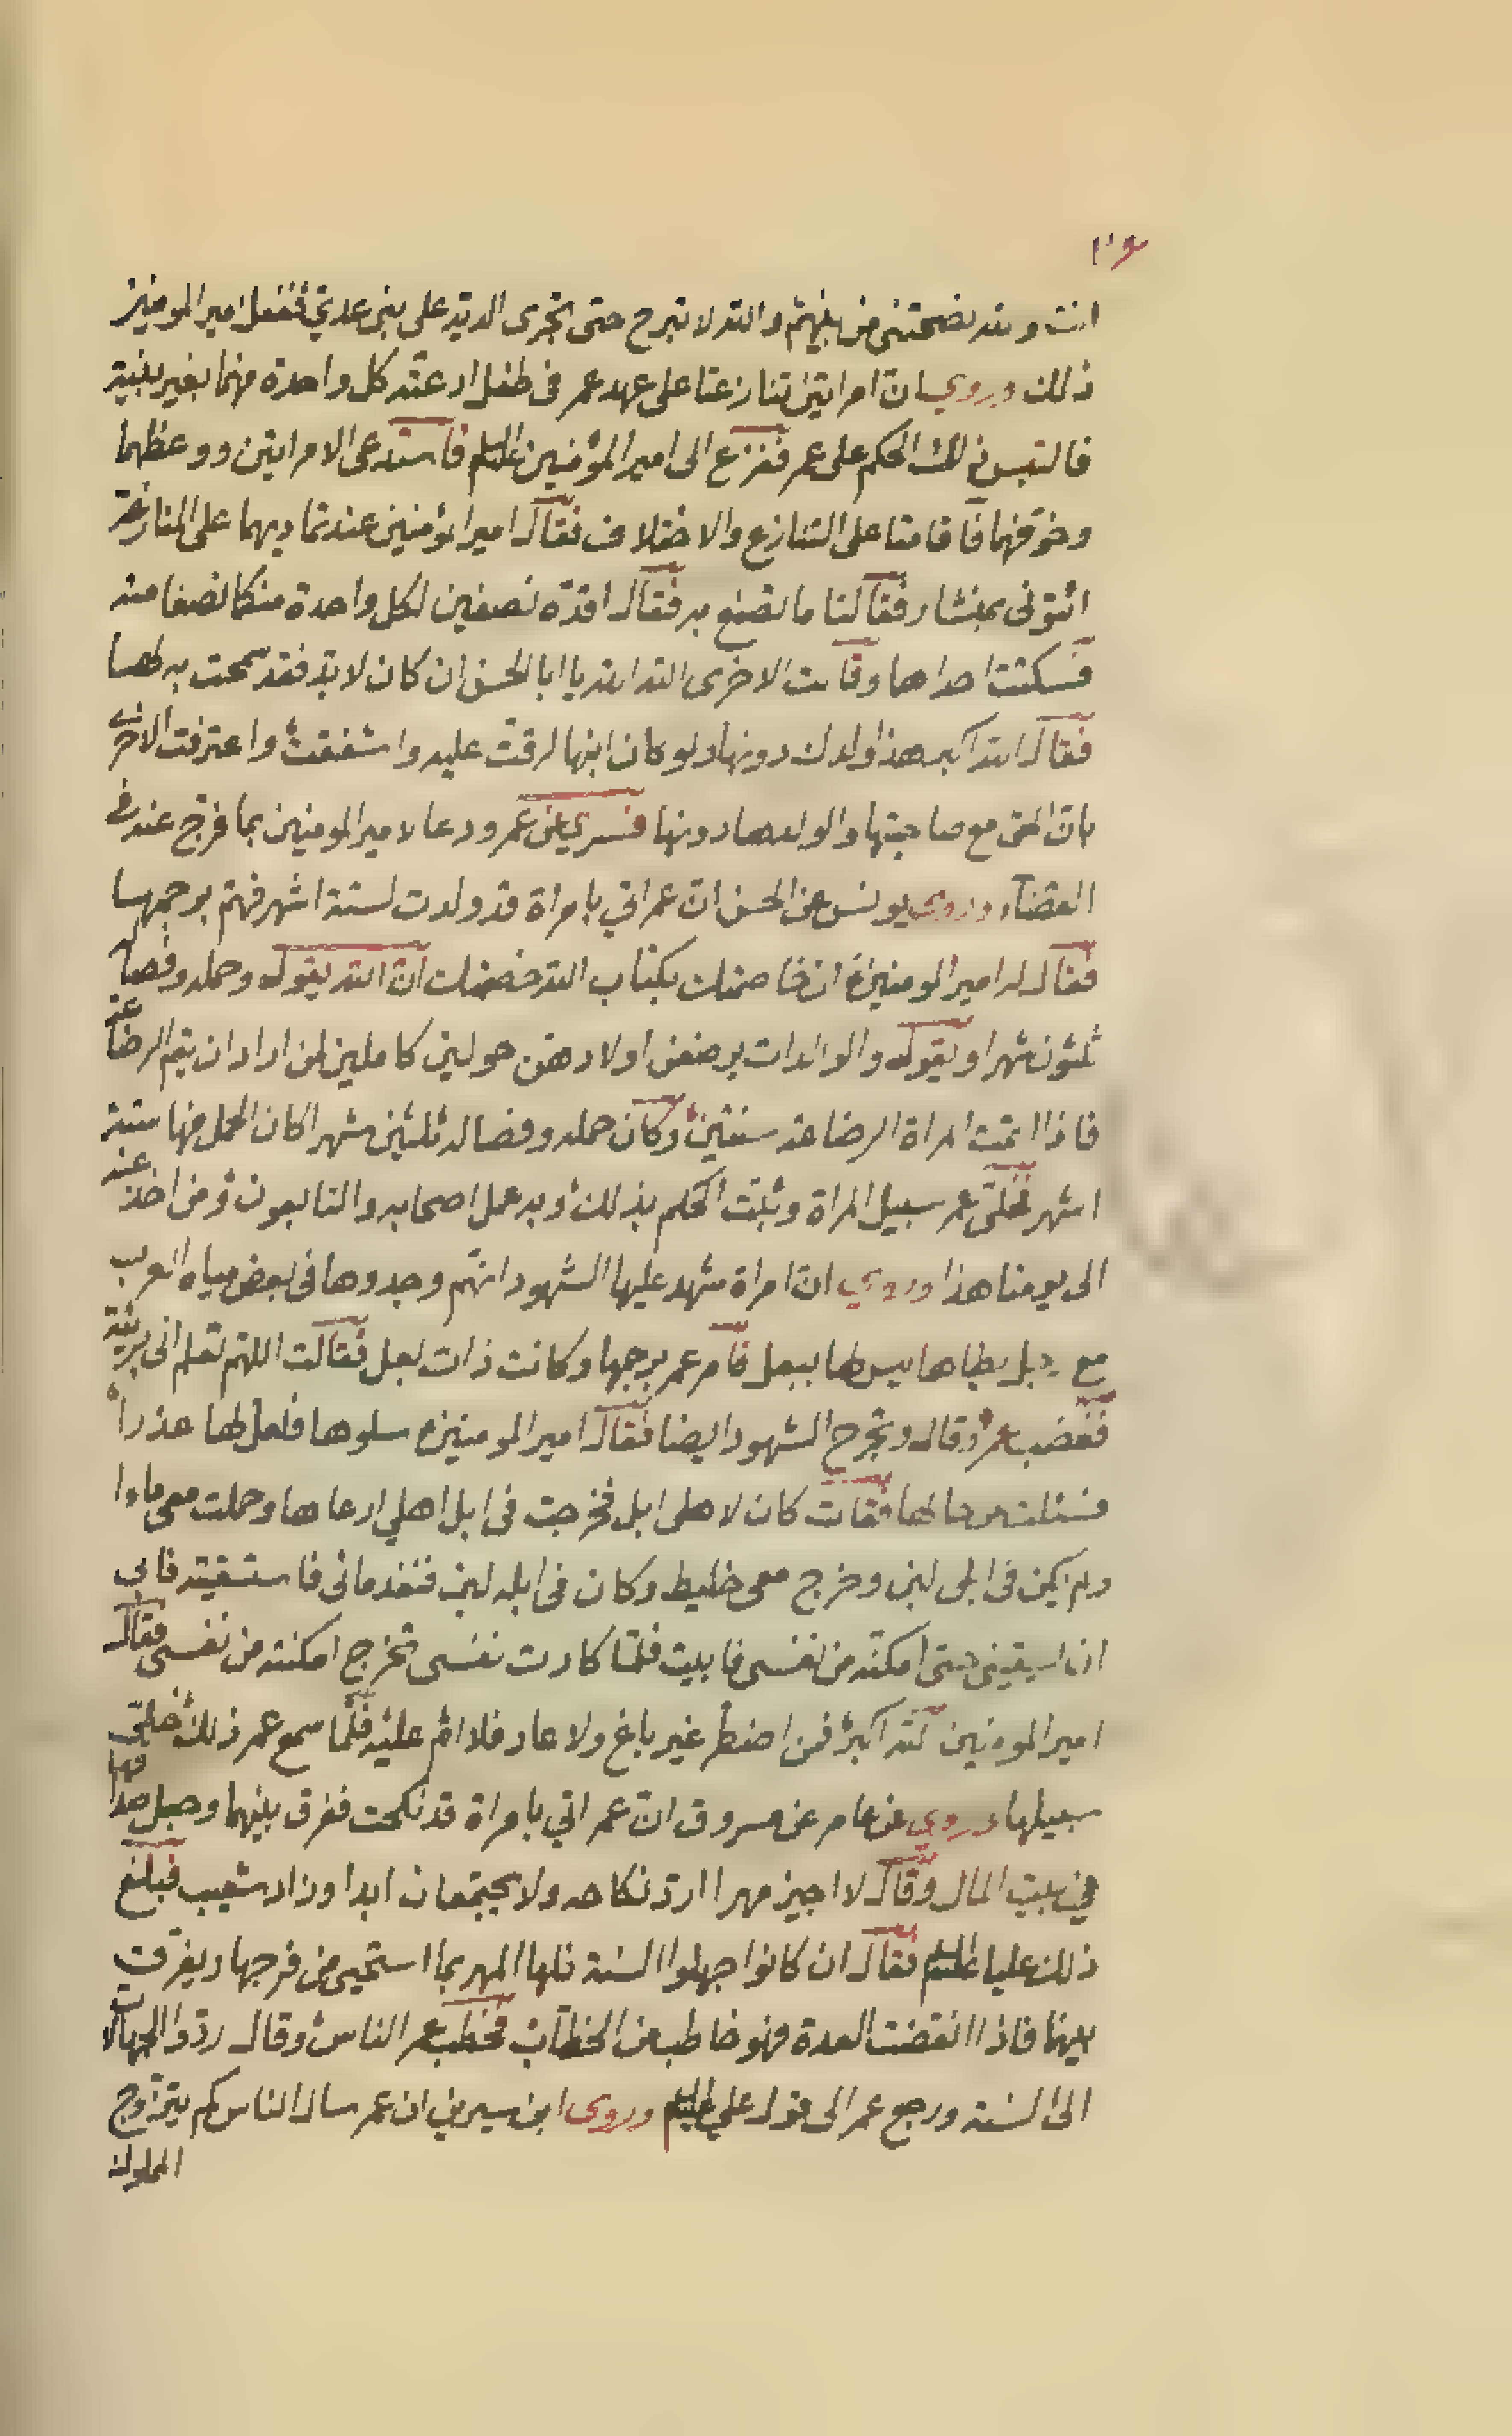 انت والله نصحتنى من بينهم والله لا تبرح حتى تجرى الدية على بنى عدي ففعل امير المومنين
ذلك وروي ان امراتين تنازعتا على عهد عمر فى طفل ادعته كل واحدة منهما بغير بينة
فالتبس ذلك الحكم على عمر ففزع الى امير المؤمنين عليه السلم فاستدعى الامراتين ووعظهما
وخوفهما فاقامتا على التنازع والاختلاف فقال امير المؤمنين عند تماديهما على المنازعة
ائتونى بمنشار فقالتا ما تصنع به فقال اقده نصفين لكل واحدة منكما نصفا منه
فسكتت احداهما وقالت الاخرى الله الله يا ابا الحسن ان كان لا بد فقد سمحت به لها
فقال الله اكبر هذا ولدك دونها ولو كان ابنها لرقت عليه واشفقت واعترفت الاخرى
بان الحق مع صاحبتها والولد لها دونها فسرى عن عمر ودعا لامير المومنين بما فرج عنه فى
القضاء وروى يونس عن الحسن ان عمر اتي بامراة قد ولدت لستة اشهر فهم برجمها
فقال له امير المومنين ع ان خاصمتك بكتاب الله خصمتك ان الله يقول وحمله وفصاله
ثلثون شهرا ويقول والوالدات يرضعن اولادهن حولين كاملين لمن اراد ان يتم الرضاعة
فاذا اتمت المراة الرضاعة سنتين وكان حمله وفصاله ثلثين شهرا كان الحمل منها ستة
اشهر فخلى عمر سبيل المراة وثبت الحكم بذلك وبه عمل اصحابه والتابعون ومن اخذ عنه
الى يومنا هذا وروي ان امراة شهد عليها الشهود انهم وجدوها فى بعض مياه العرب
مع رجل يطاها ليس لها ببعل فامر عمر برجمها وكانت ذات بعل فقالت اللهم تعلم انى بريئة
فغضب عمر وقال وتجرح الشهود ايضا فقال امير المومنين ع سلوها فلعل لها عذرا
فسئلت عن حالها فقالت كان لاهلى ابل فخرجت فى ابل اهلي ارعاها وحملت معى ماءا
ولم يكن فى ابلى لبن وخرج معى خليط وكان فى ابله لبن فنفد مائى فاستسقيته فابى
ان يسقينى حتى امكنه من نفسى فابيت فلما كادت نفسى تخرج امكنته من نفسى فقال
امير المومنين الله اكبر فمن اضطر غير باغ ولا عاد فلا اثم عليه فلما سمع عمر ذلك خلى
سبيلها وروي عن عامر عن مسروق ان عمر اتي بامراة قد نكحت ففرق بينهما وجعل صداقها
في بيت المال وقال لا اجيز مهرا ارد نكاحه ولا يجتمعان ابدا وزاد شعيب فبلغ
ذلك عليا عليه السلم فقال ان كانوا جهلوا السنة فلها المهر بما استحل من فرجها ويفرق
بينهما فاذا انقضت العدة فهو خاطب من الخطاب فخطب عمر الناس وقال ردوا الجهالات
الى السنة ورجع عمر الى قول علي عليه السلم وروى ابن سيرين ان عمر سال الناس كم يتزوج
المملوك